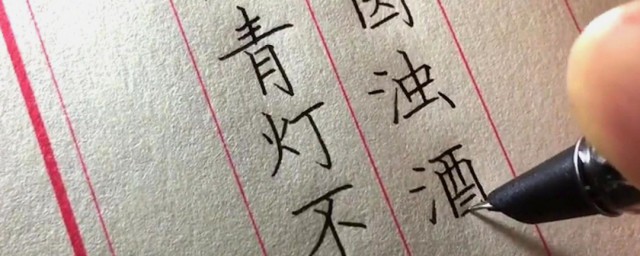 青灯不
因浊酒